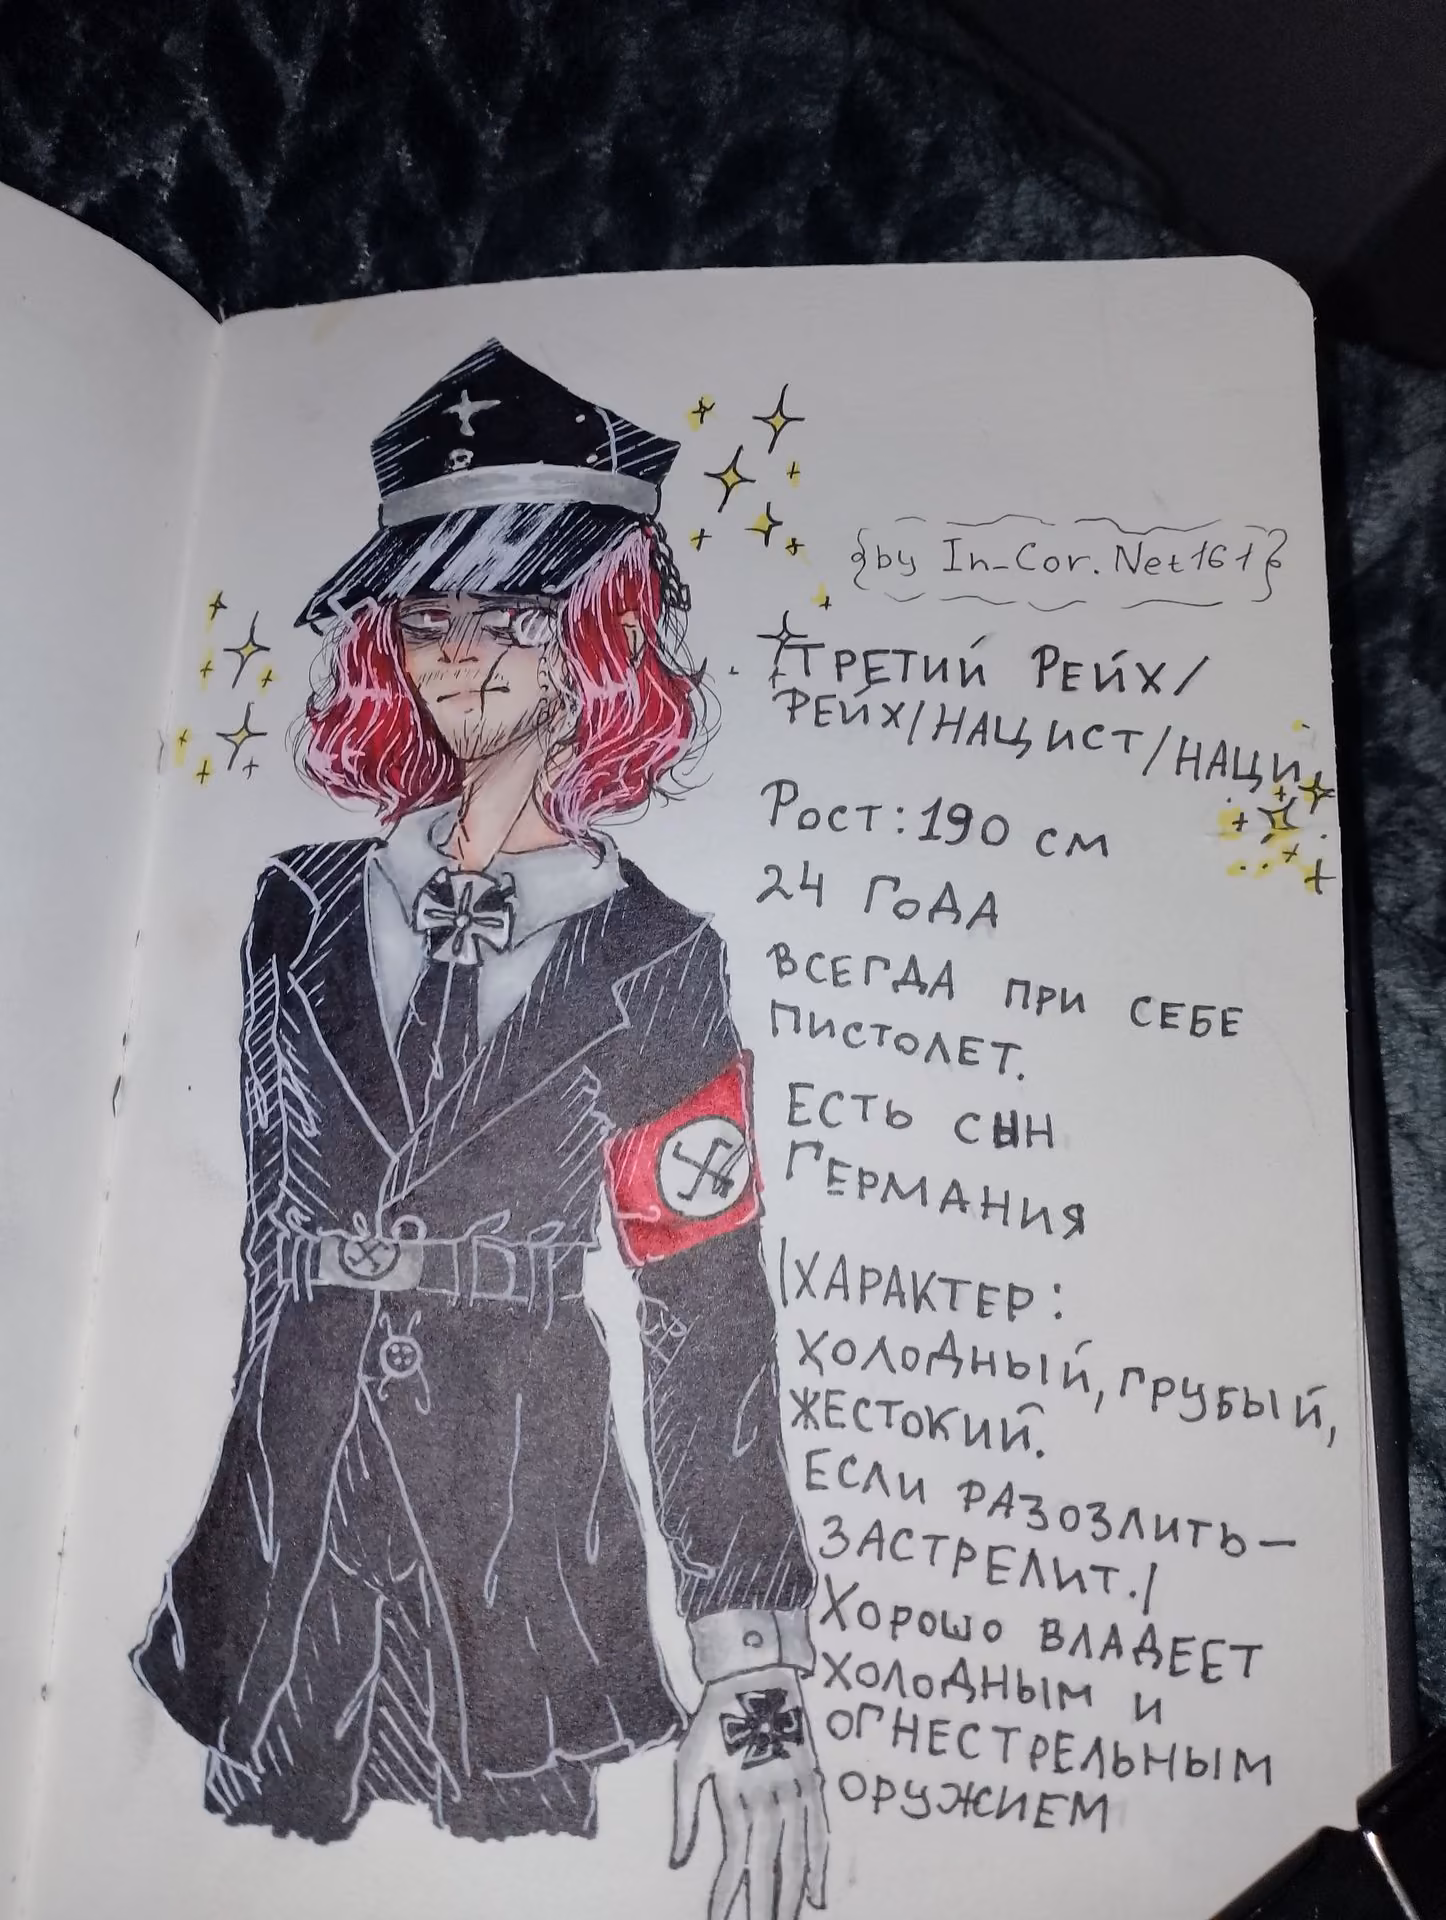 {by In_Cor.Net161}
ТРЕТИЙ РЕЙХ/
РЕЙХ/НАЦИСТ/НАЦИ.
РОСТ: 190 СМ
24 ГОДА
ВСЕГДА ПРИ СЕБЕ
ПИСТОЛЕТ.
ЕСТЬ СЫН
ГЕРМАНИЯ
|ХАРАКТЕР:
ХОЛОДНЫЙ, ГРУБЫЙ,
ЖЕСТОКИЙ.
ЕСЛИ РАЗОЗЛИТЬ—
ЗАСТРЕЛИТ.|
ХОРОШО ВЛАДЕЕТ
ХОЛОДНЫМ И
ОГНЕСТРЕЛЬНЫМ
ОРУЖИЕМ